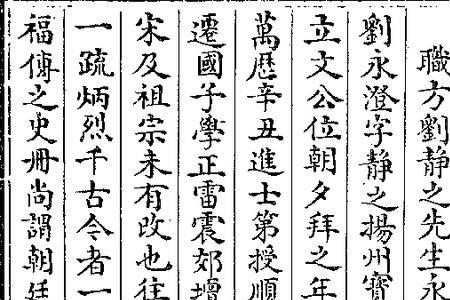 職方劉靜之先生永
劉永澄字靜之揚州寶
立文公位朝夕拜之年
萬歷辛丑進士第授順
遷國子學正雷震郊壇
宋及祖宗未有改也往
一疏炳烈千古今者一
福傳之史冊尚謂朝廷